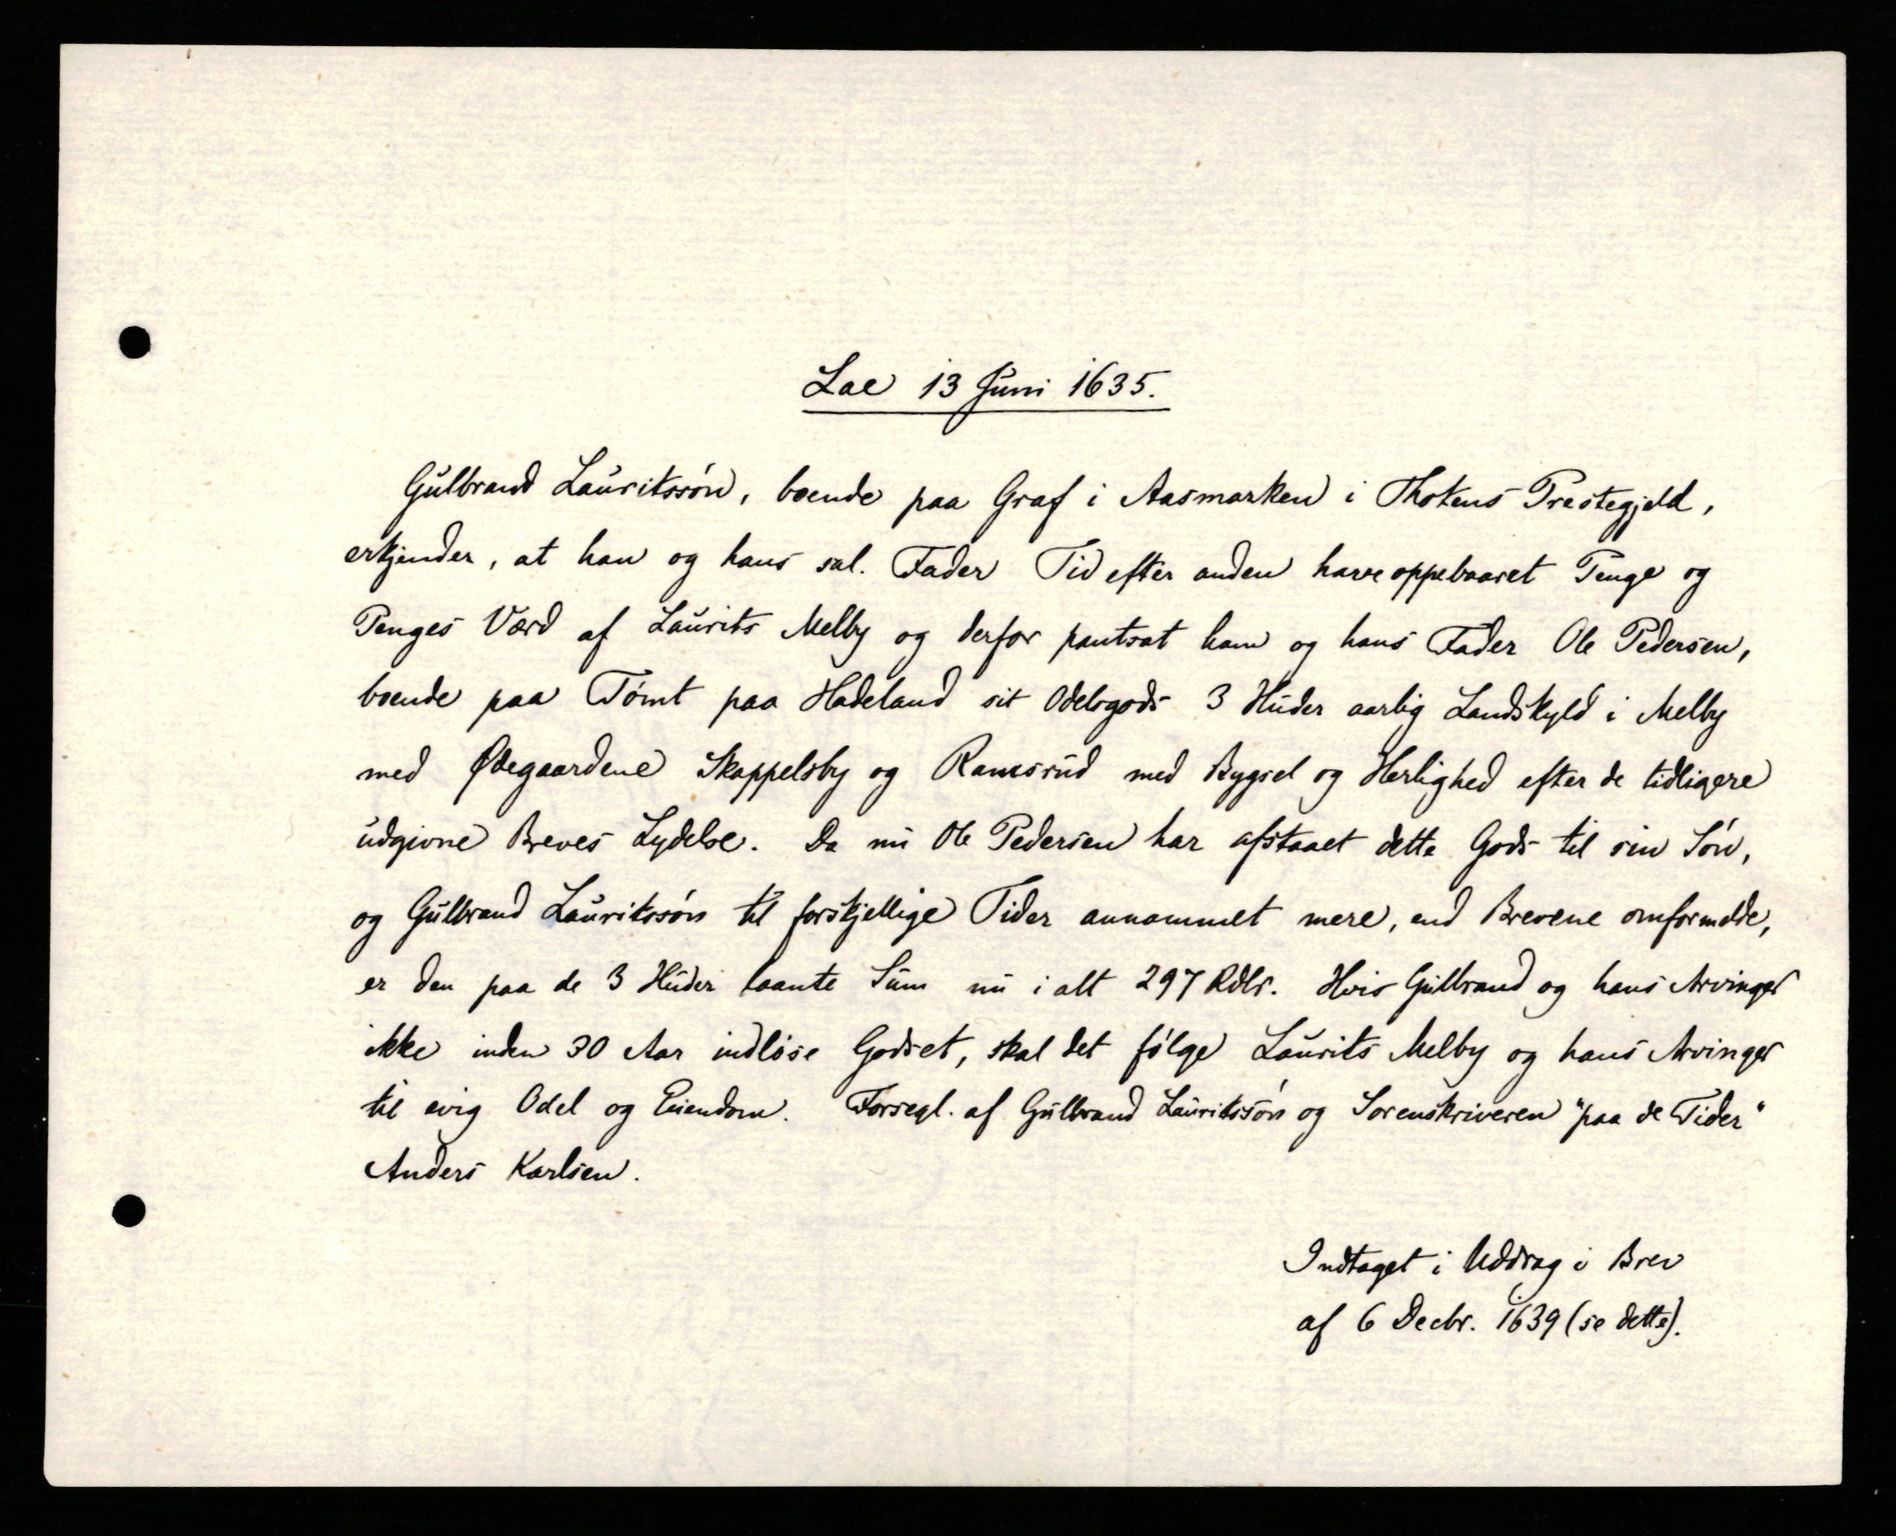 Lae 13 Juni 1635.
Gulbrand Lauritssón, boende paa Graf i Aasmarken i Thotens Prestegjeld,
erkjender, at han og hans sal. Fader Tid efter anden have oppebaaret Penge og
Penges Værd af Laurits Melby og derfor pantsat ham og hans Fader Ole Pedersen,
boende paa Tómt paa Hadeland sit Odelsgods 3 Huder aarlig Landskyld i Melby
med Ødegaardene Skappelsby og Ramsrud med Bygsel og Herlighed efter de tidligere
udgivne Breves Lydelse. Da nu Ole Pedersen har afstaaet dette Gods til sin Són,
og Gulbrand Lauritssón til forskjellige Tider annammet mere, end Brevene omformelde,
er den paa de 3 Huder laante Sum nu i alt 297 Rdlr. Hvis Gulbrand og hans Arvinger
ikke inden 30 Aar indlóse Godset, skal det fólge Laurits Melby og hans Arvinger
til evig Odel og Eiendom. Forsegl. af Gulbrand Lauritssón og Sorenskriveren "paa de Tider"
Anders Karlsen.
Indtaget i Uddrag i Brev
af 6 Decbr. 1639 (se dette).